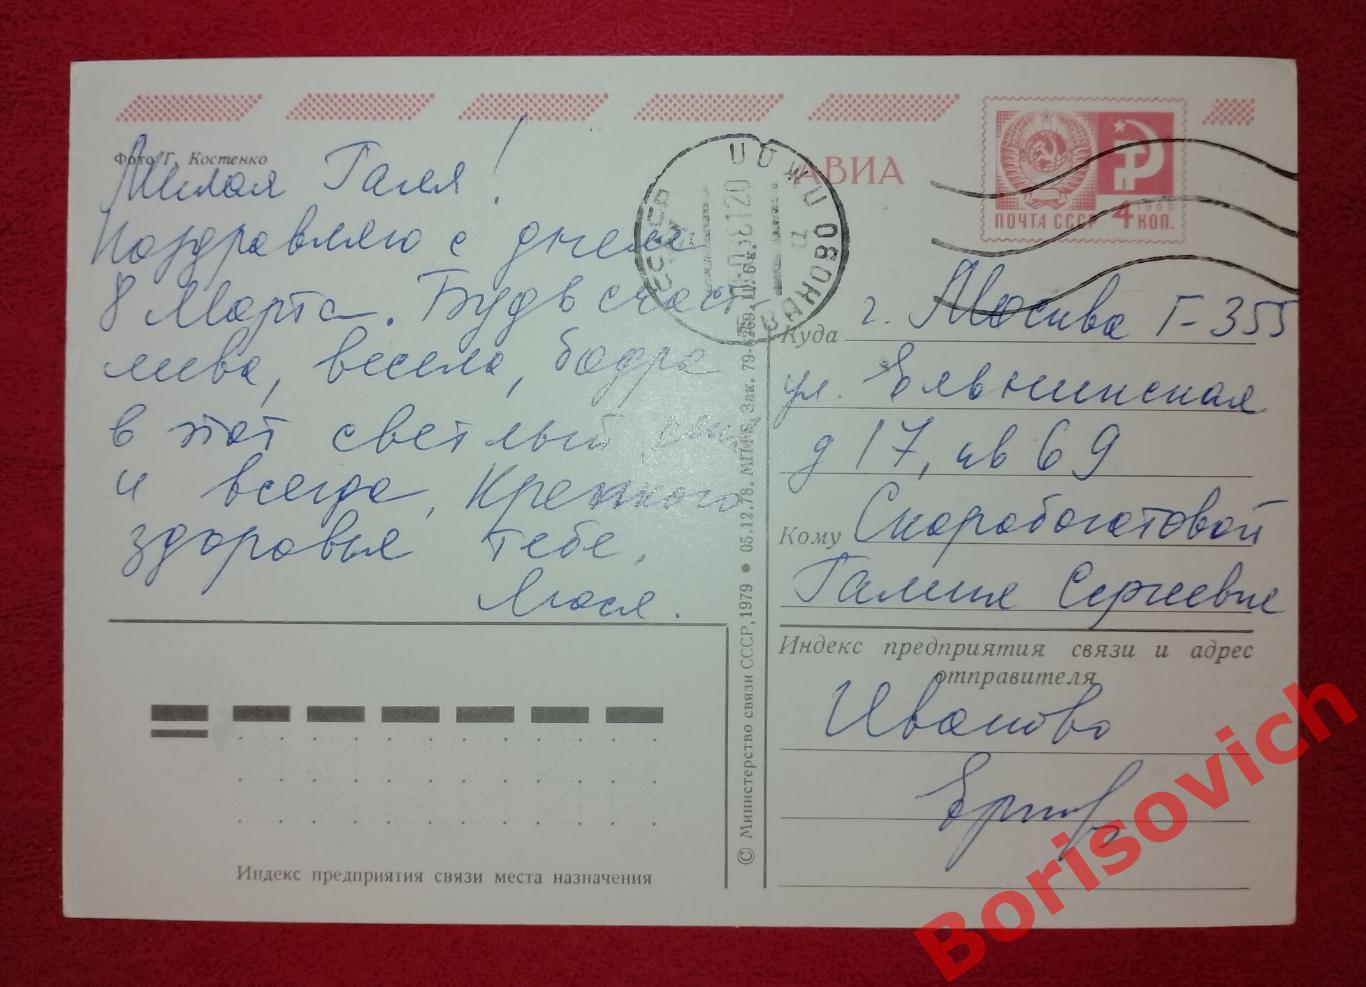 Фото Г. Костенко
Милая Галя!
Поздравляю с днем
8 Марта. Будь счаст-
лива, весела, бодра
в этот светлый день
и всегда, Крепкого
здоровья тебе.
Люся.
АВИА
ПОЧТА СССР
4 КОП.
1966
СССР
Куда г. Москва Г-355
ул.
д 17, кв 69
Кому Скоробогатовой
Галине Сергеевне
Индекс предприятия связи и адрес
отправителя
Иваново
Индекс предприятия связи места назначения
© Министерство связи СССР, 1979 • 05.12.78. Зак. 79-6269. Ц. 6 к.
Borisovich